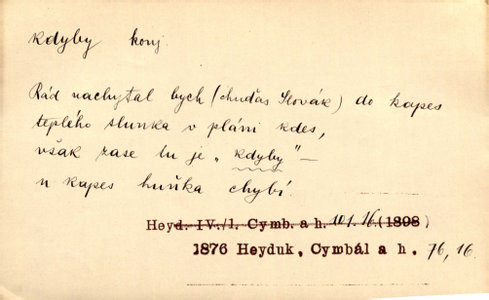 kdyby konj.
Rád nachytal bych (chuďas Slovák) do kapes
teplého slunka v pláni kdes,
však zase tu je „kdyby" –
u kapes huňka chybí.
Heyd. IV./1. Cymb. a h. 101. 16. (1898)
1876 Heyduk, Cymbál a h. 76, 16.